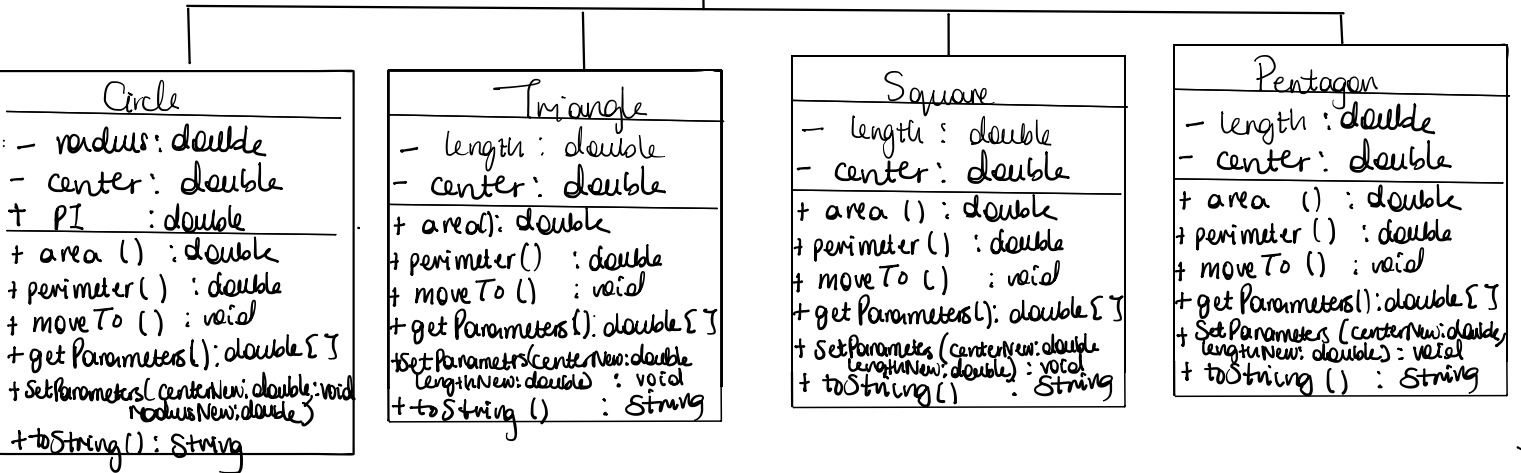 Circle
- radius: double
- center: double
+ PI : double
+ area () : double
+ perimeter () : double
+ move To () : void
+ get Parameters(): double []
+ SetParameters( centerNew: double : void
radiusNew: double)
+ toString() : String
Triangle
- length : double
- center : double
+ area(): double
+ perimeter() : double
+ move To () : void
+ get Parameters(): double []
+ SetParametrs(centerNew: double
lengthNew: double) : void
+ toString () : String
Square
- length : double
- center : double
+ area () : double
+ perimeter () : double
+ move To () : void
+ get Parameters(): double []
+ SetParametes (centerNew: double
lengthNew: double) : void
+ toString () : String
Pentagon
- length : double
- center : double
+ area () : double
+ perimeter () : double
+ move To () : void
+ get Parameters(): double []
+ SetParameters (centerNew: double,
lengthNew: double) : void
+ toString () : String